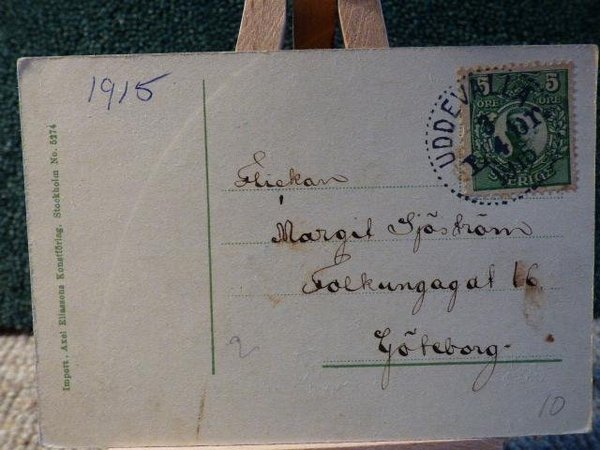 1915
Import. Axel Eliassons Konstförlag. Stockholm No. 5274
5 5
ÖRE ÖRE
SVERIGE
UDDEVALLA
Flickan
Margit Sjöström
Folkungagat 16
Göteborg.
2
10